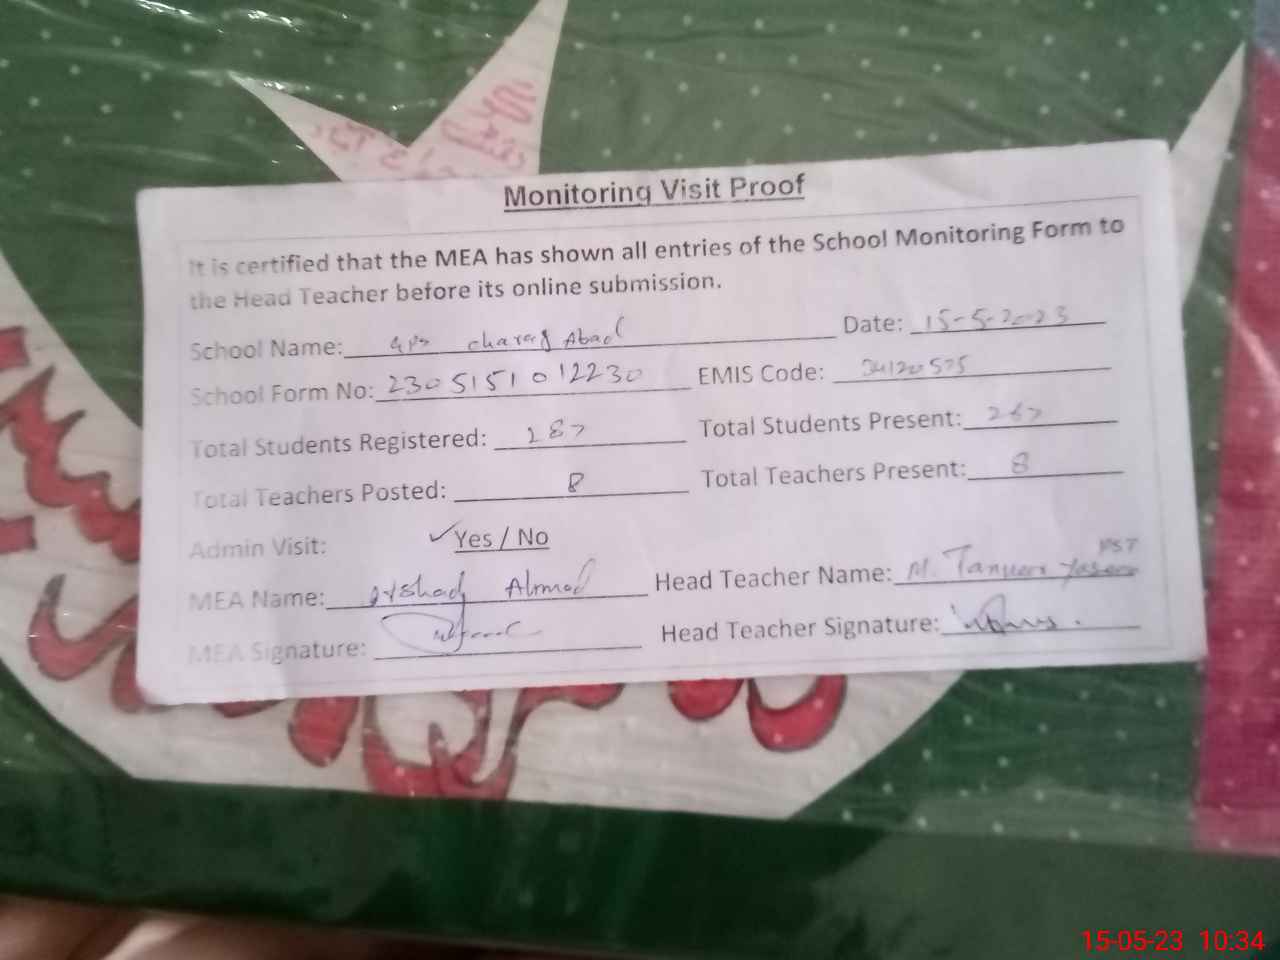 Monitoring Visit Proof
It is certified that the MEA has shown all entries of the School Monitoring Form to
the Head Teacher before its online submission.
School Name: GPS Charag Abad Date: 15-5-2023
School Form No: 2305151012230 EMIS Code: 34120575
Total Students Registered: 287 Total Students Present: 267
Total Teachers Posted: 8 Total Teachers Present: 8
Admin Visit: ✓Yes / No
PST
MEA Name: Arshad Ahmad Head Teacher Name: M. Tanveer Yaseen
MEA Signature: Head Teacher Signature:
15-05-23 10:34